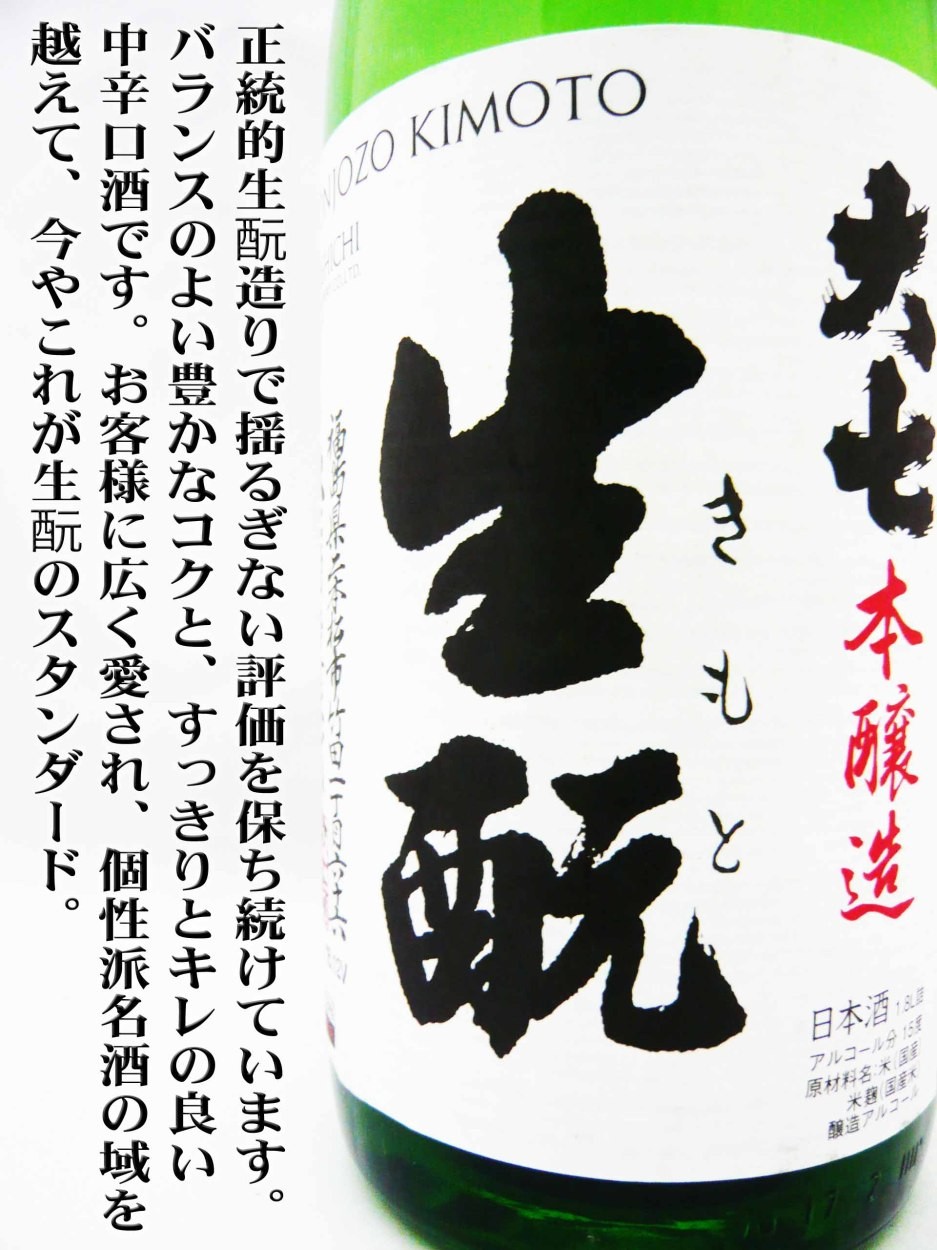 正統的生酛造りで揺るぎない評価を保ち続けています。
バランスのよい豊かなコクと、すっきりとキレの良い
中辛口酒です。お客様に広く愛され、個性派名酒の域を
越えて、今やこれが生酛のスタンダード。
NJOZO KIMOTO
HICHI
CO.,LTD.
大七
本醸造
生酛
きもと
福島県二本松市竹田一丁目六十六
日本酒 1.8L詰
アルコール分 15度
原材料名:米(国産)
米麹(国産米
醸造アルコール
17.2